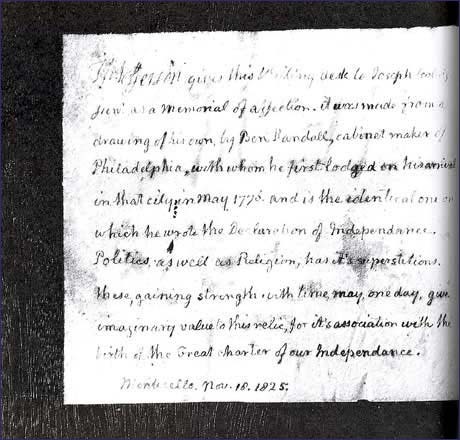 Th Jefferson gives this Writing desk to Joseph Coolidge
junr. as a memorial of affection. it was made from a
drawing of his own, by Ben Randall, cabinet maker of
Philadelphia, with whom he first lodged on his arrival
in that city in May 1776. and is the identical one on
which he wrote the Declaration of Independance.
Politics as well as Religion, has it's superstitions.
these, gaining strength with time, may, one day, give
imaginary value to this relic, for it's association with the
birth of the Great charter of our Independance.
Monticello. Nov. 18. 1825.